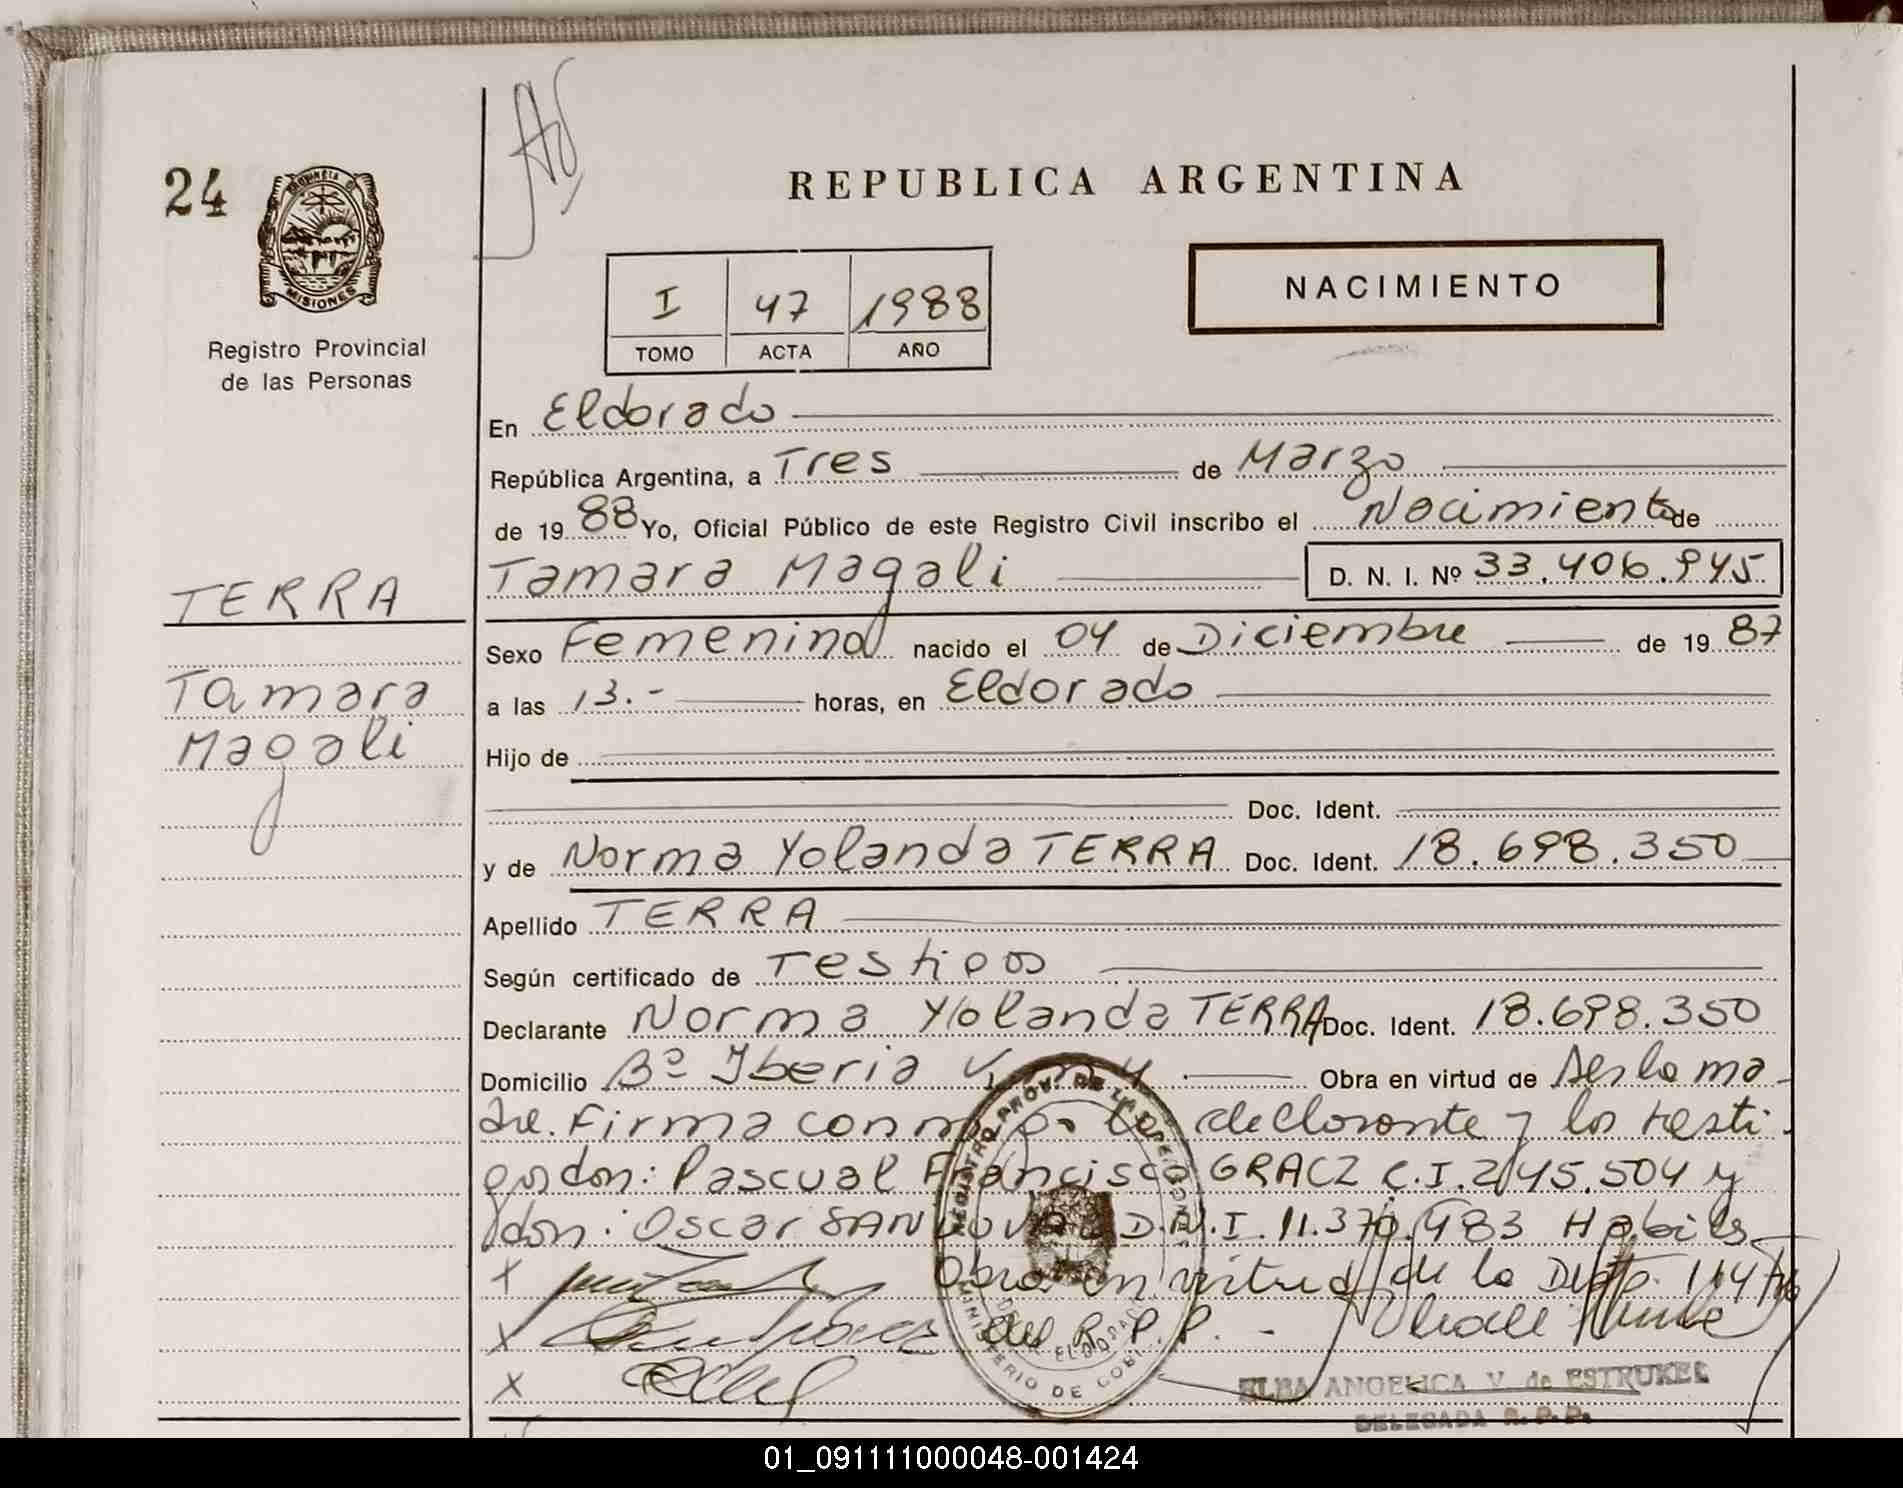 24
PROVINCIA DE
MISIONES
Registro Provincial
de las Personas
REPUBLICA ARGENTINA
I 47 1988
TOMO ACTA AÑO
NACIMIENTO
En Eldorado
República Argentina, a Tres de Marzo
de 1988 Yo, Oficial Público de este Registro Civil inscribo el Nacimiento de
TERRA
Tamara Magali D. N. I. Nº 33.406.945
Sexo Femenino nacido el 04 de Diciembre de 1987
Tamara
a las 13.- horas, en Eldorado
Magali
Hijo de
Doc. Ident.
y de Norma Yolanda TERRA Doc. Ident. 18.698.350
Apellido TERRA
Según certificado de Testigos
Declarante Norma Yolanda TERRA Doc. Ident. 18.698.350
Domicilio Bº Iberia Obra en virtud de ser la ma-
dre. Firma con la declarante y los testi-
gos don: Pascual Francisco GRACZ C.I. 245.504 y
don: Oscar SANDOVAL D.N.I. 11.370.483 Habiles
X Obra en virtud de la
X del R.P.P. -
X
ELBA ANGELICA V. de ESTRUKEL
DELEGADA R.P.P.
01_091111000048-001424